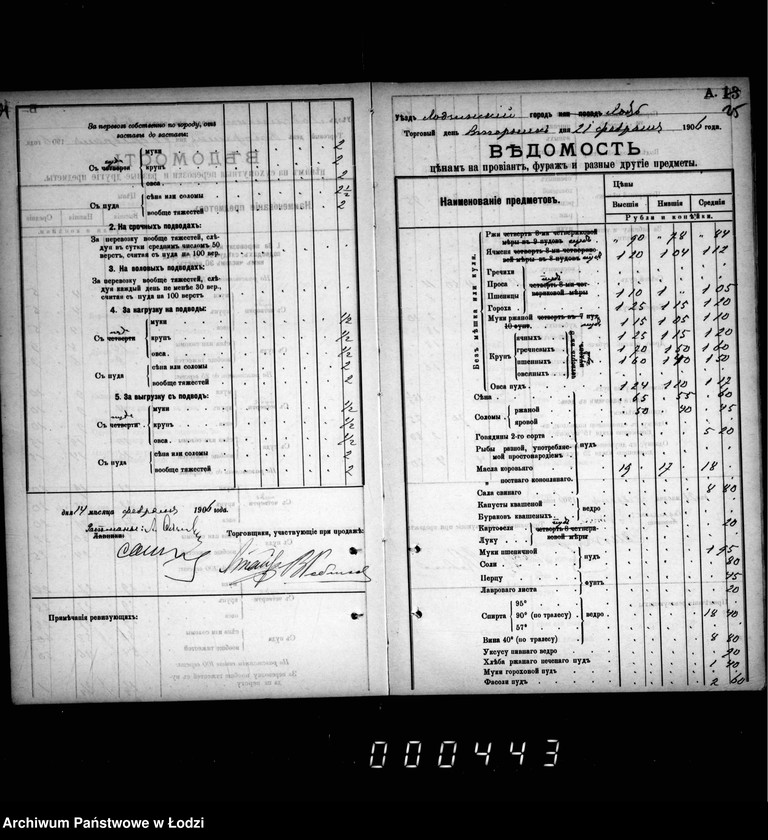 За перевозъ собственно по городу, отъ
заставы до заставы:
Съ четверти пуда
муки 2
крупъ 2
овса 2
Съ пуда
сѣна или соломы 2½
вообще тяжестей 2
2. На срочныхъ подводахъ:
За перевозку вообще тяжестей, слѣ-
дуя въ сутки среднимъ числомъ 50
верстъ, считая съ пуда на 100 вер.
3. На воловыхъ подводахъ:
За перевозку вообще тяжестей, слѣ-
дуя каждый день не менѣе 30 вер.,
считая съ пуда на 100 верстъ
4. За нагрузку на подводы:
Съ четверти пуда
муки ½
крупъ ½
овса ½
Съ пуда
сѣна или соломы 2
вообще тяжестей 2
5. За выгрузку съ подводъ:
Съ четверти пуда
муки ½
крупъ ½
овса ½
Съ пуда
сѣна или соломы 2
вообще тяжестей 2
дня 14 мѣсяца февраля 1906 года.
Торговцы, участвующіе при продажѣ:
Примѣчанія ревизующихъ:
А. 13
25
Уѣздъ Лодзинскій городъ или посадъ Лодзь
Торговый день Вторникъ дня 21 февраля 1906 года.
ВѢДОМОСТЬ
цѣнамъ на провіантъ, фуражъ и разные другіе предметы.
Наименованіе предметовъ.
Цѣны
Высшія Низшія Среднія
Рубли и копѣйки.
Безъ мѣшка или куля.
Ржи четверть 8-ми четвериковой
мѣры въ 9 пудовъ пудъ " 90 " 78 " 84
Ячменя четверть 8-ми четверико-
вой мѣры въ 8 пудовъ пудъ 1 20 1 04 1 12
Гречихи
Проса
Пшеницы 1 10 1 " 1 05
Гороха 1 25 1 15 1 20
пудъ четверть 8-ми чет-
вериковой мѣры
Муки ржаной четверть въ 7 пуд.
10 фунт. пудъ 1 15 1 05 1 10
Крупъ
ячныхъ 1 25 1 15 1 20
гречневыхъ 1 70 1 50 1 60
пшенныхъ 1 60 1 40 1 50
овсяныхъ
Овса пудъ 1 24 1 10 1 12
Сѣна 65 55 60
Соломы
ржаной 50 40 45
яровой
Говядины 2-го сорта 5 20
Рыбы разной, употребляе-
мой простонародіемъ
пудъ
Масла коровьяго 19 17 18
" постнаго коноплянаго
Сала свинаго 8 80
Капусты квашеной
Бураковъ квашеныхъ
ведро
Картофеля 20
Луку
пудъ четверть 8 четвери-
ковой мѣры
Муки пшеничной 1 95
Соли 80
пудъ
Перцу 45
Лавроваго листа 20
фунтъ
Спирта
95°
90° (по тралесу) ведро 18 40
57°
Вина 40° (по тралесу) 8 80
Уксусу пивнаго ведро 20
Хлѣба ржанаго печенаго пудъ 1 40
Муки гороховой пудъ
Фасоли пудъ 2 60
000443
Archiwum Państwowe w Łodzi